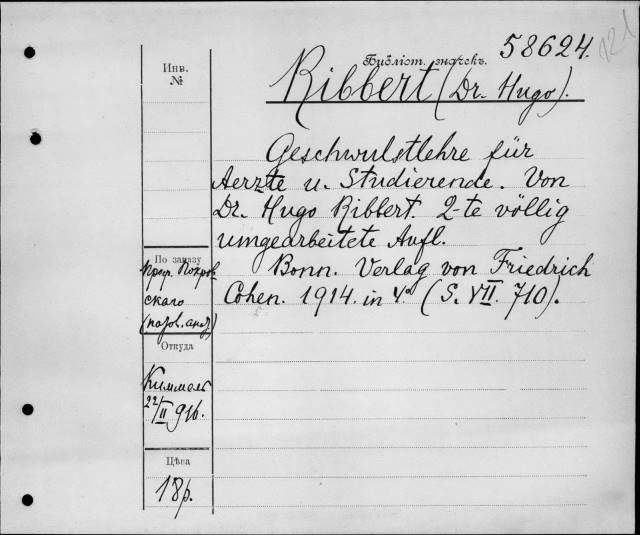 58624.
121
Библіот. значекъ.
Ribbert (Dr. Hugo).
Инв.
№
Geschwulstlehre für
Aerzte u. Studierende. Von
Dr. Hugo Ribbert. 2-te völlig
umgearbeitete Aufl.
Bonn. Verlag von Friedrich
Cohen. 1914. in 4º (S. VII. 710).
По заказу
проф. Покров
скаго
Откуда
Киммель
22/II 916.
Цѣна
18р.